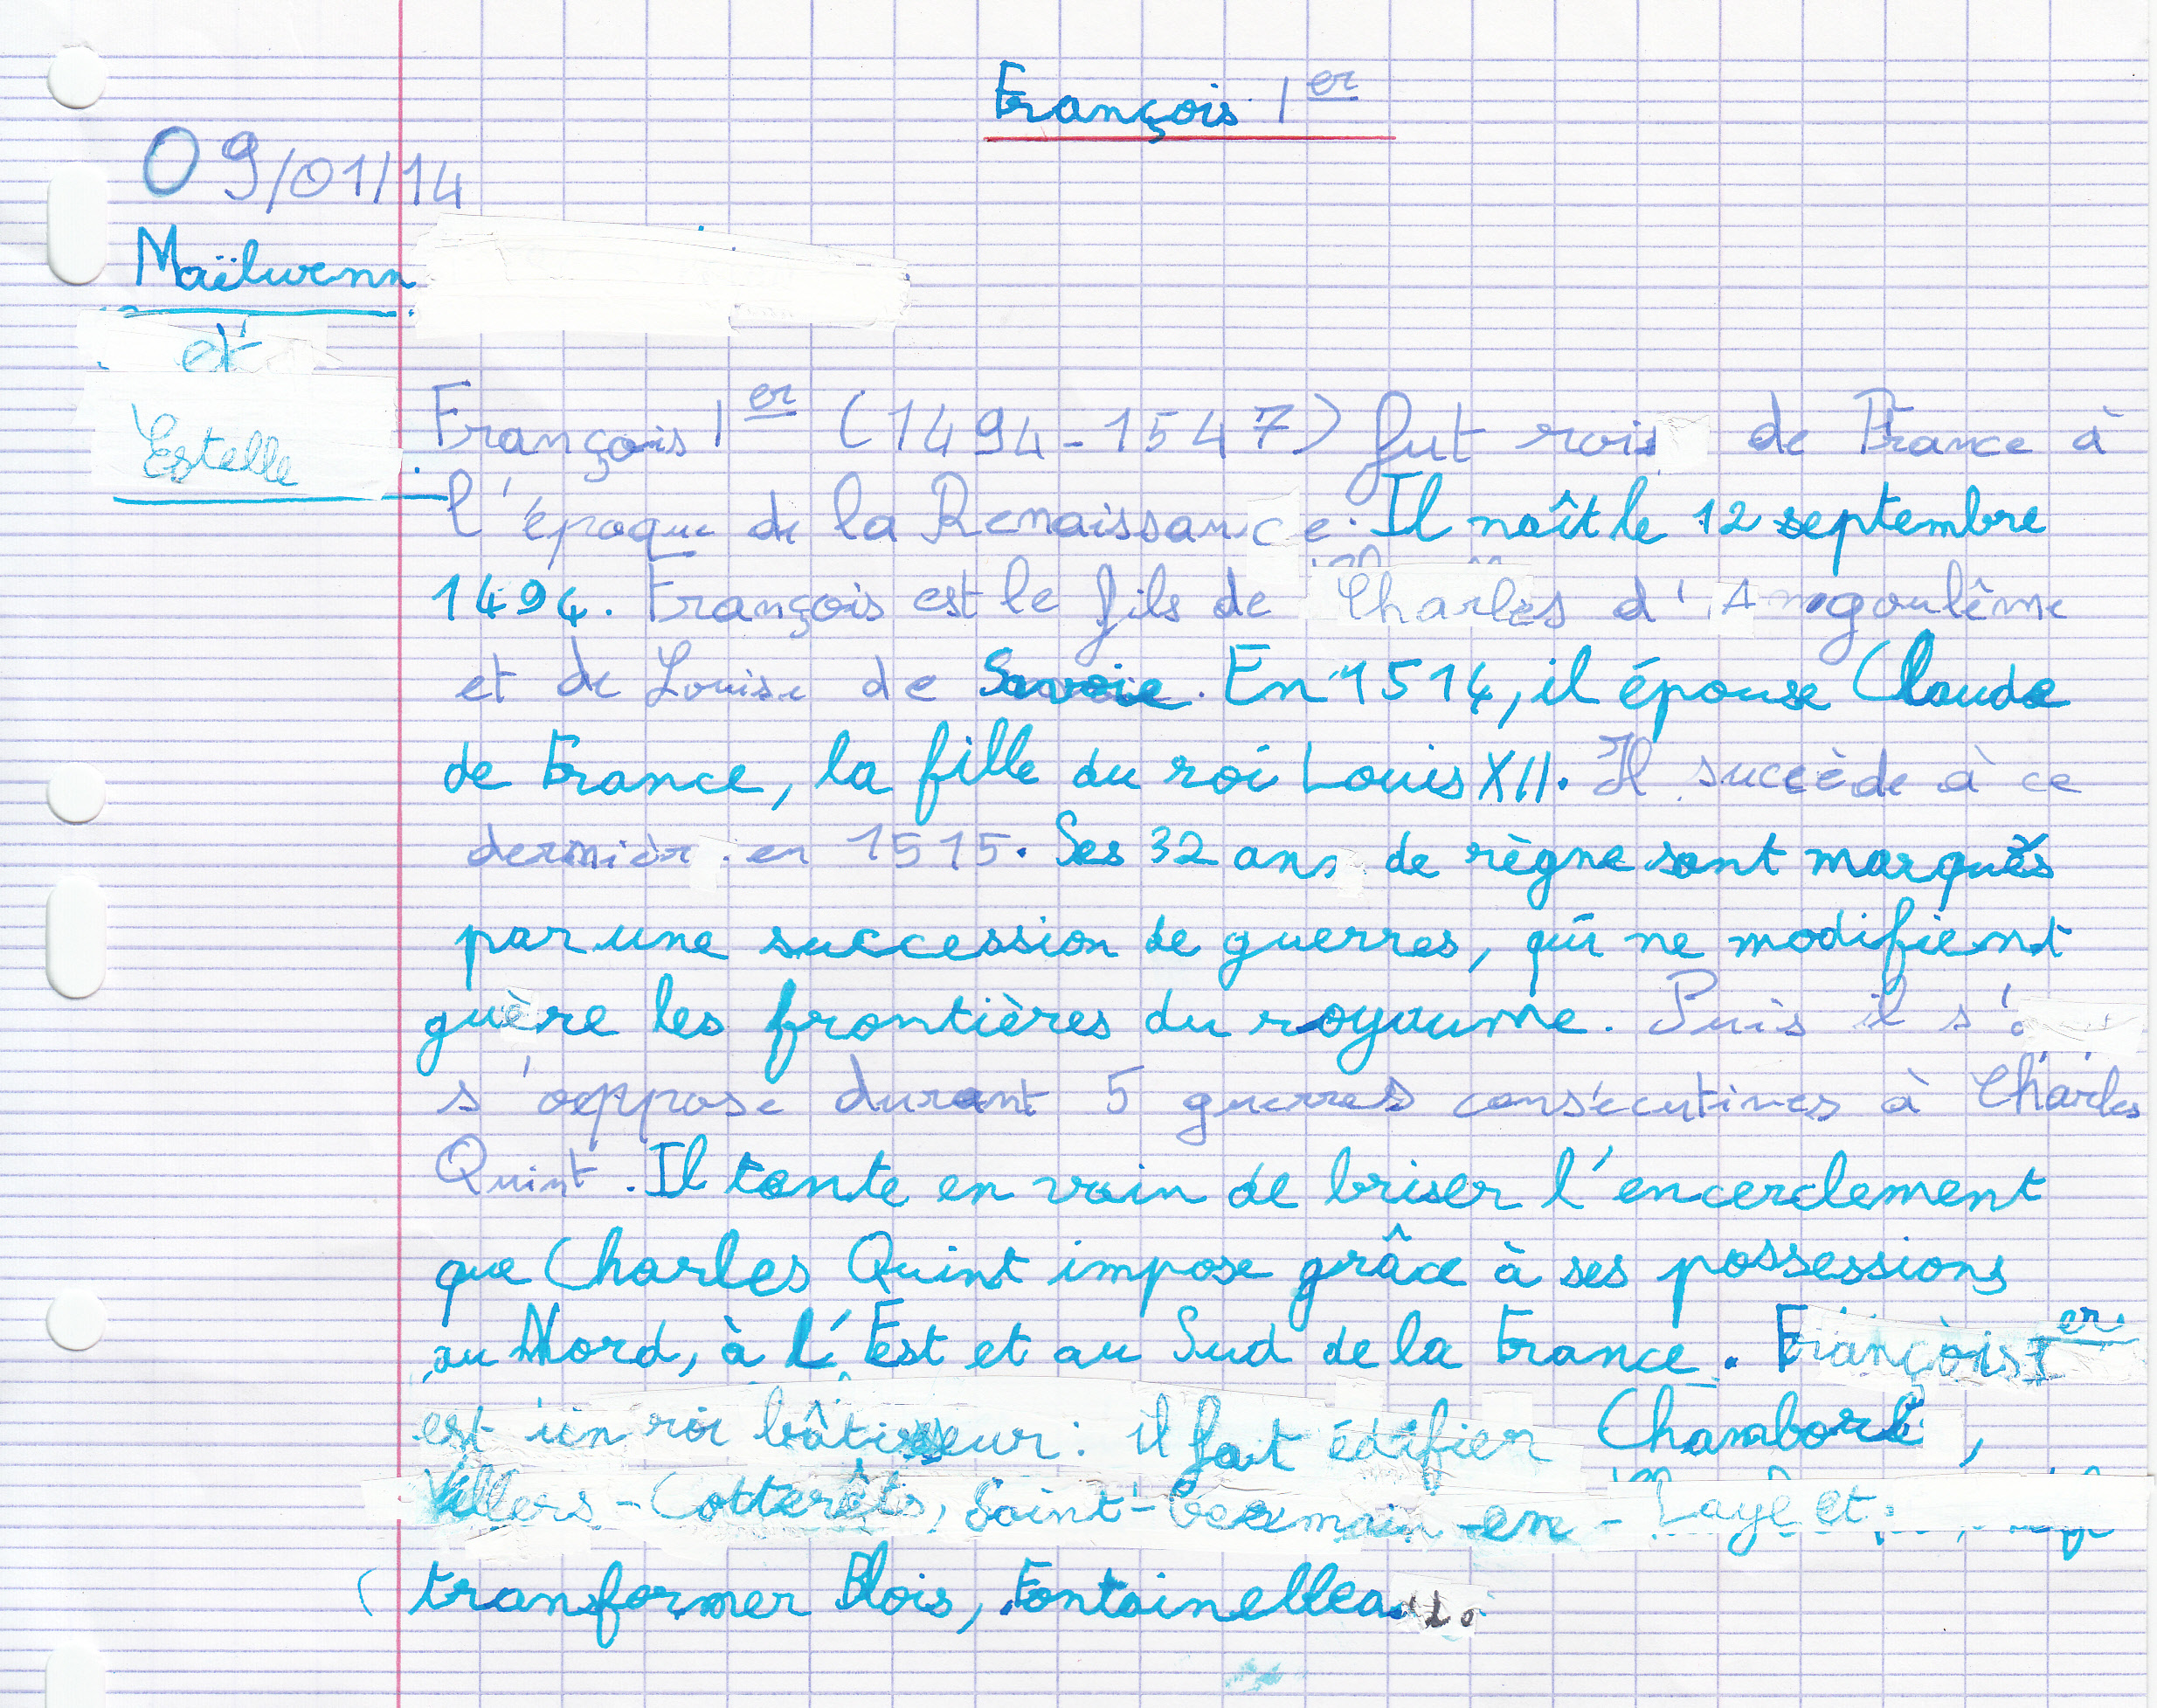 François 1er
09/01/14
Maïlwenn
et
Estelle
François 1er (1494-1547) fut rois de France à
l'époque de la Renaissance. Il naît le 12 septembre
1494. François est le fils de Charles d'Angoulême
et de Louise de Savoie. En 1514, il épouse Claude
de France, la fille du roi Louis XII. Il succède à ce
dernièr en 1515. Ses 32 ans de règne sont marqués
par une succession de guerres, qui ne modifient
guère les frontières du royaume. Puis il s'o
s'oppose durant 5 guerres consécutives à Charles
Quint. Il tente en vain de briser l'encerclement
que Charles Quint impose grâce à ses possessions
au Nord, à l'Est et au Sud de la France. François 1er
est un roi bâtisseur : il fait édifier Chambord,
Villers-Cotterêts, Saint-Germain-en-Laye et
transformer Blois, Fontainebleau.